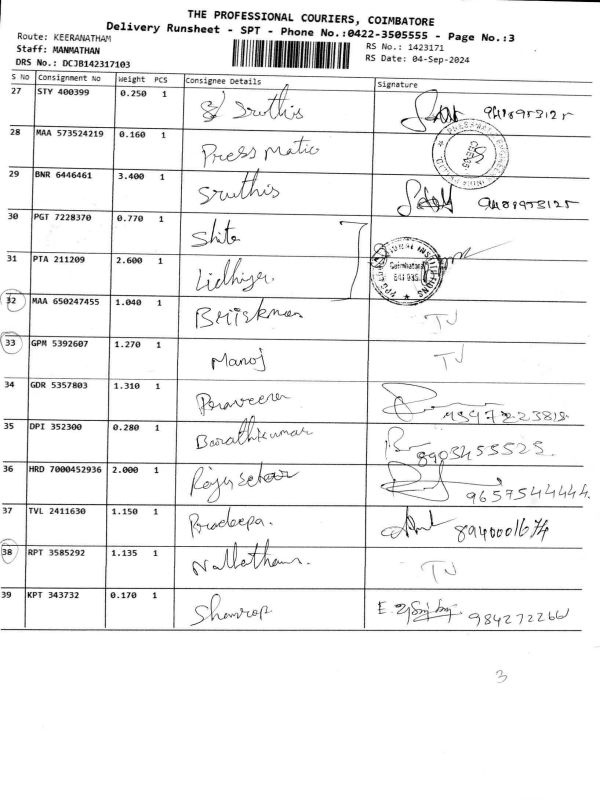 THE PROFESSIONAL COURIERS, COIMBATORE
Delivery Runsheet - SPT - Phone No.:0422-3505555 - Page No.:3
Route: KEERANATHAM
RS No.: 1423171
Staff: MANMATHAN
RS Date: 04-Sep-2024
DRS No.: DCJB142317103
S No Consignment No Weight PCS Consignee Details Signature
27 STY 400399 0.250 1 Sruthis 9489953125
28 MAA 573524219 0.160 1 Press Matic
29 BNR 6446461 3.400 1 Sruthis 9489953125
30 PGT 7228370 0.770 1
31 PTA 211209 2.600 1 Lidhiya. Coimbatore
32 MAA 650247455 1.040 1 TJ
33 GPM 5392607 1.270 1 Manoj TJ
34 GDR 5357803 1.310 1 Praveena
35 DPI 352300 0.280 1 Barathkumar 8903455525.
36 HRD 7000452936 2.000 1 9657544444.
37 TVL 2411630 1.150 1 Pradeepa. 8940001674
38 RPT 3585292 1.135 1 TJ
39 KPT 343732 0.170 1 984272266
3